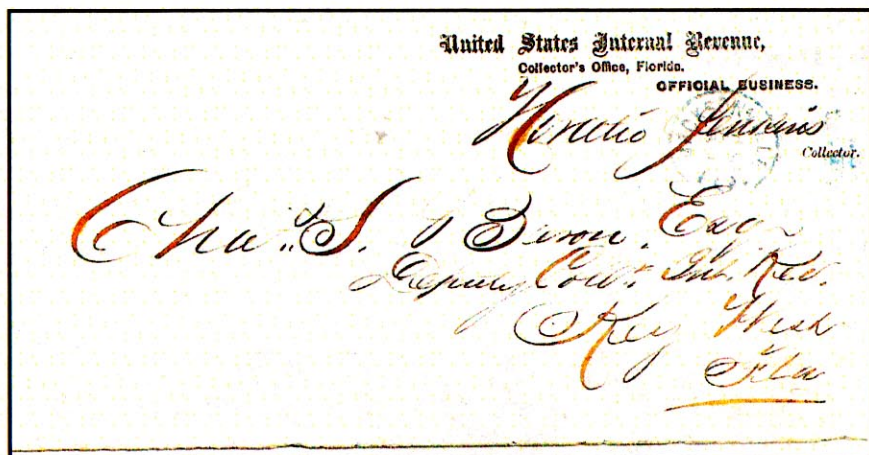 United States Internal Revenue,
Collector's Office, Florida.
OFFICIAL BUSINESS.
Horatio Jenkins
Collector.
Chas. S. Esq
Deputy Coll. Int. Rev.
Key West
Fla